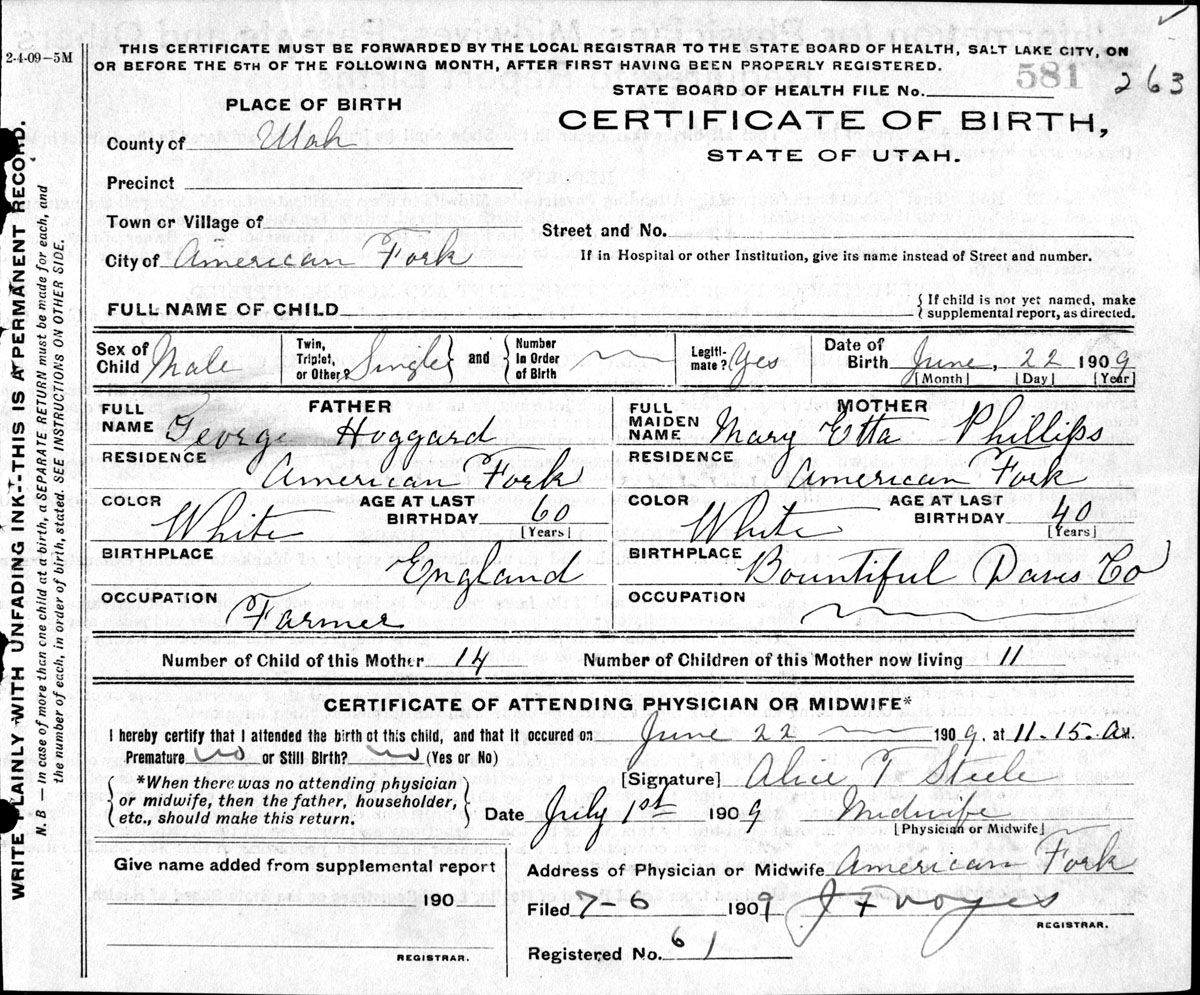 2-4-09-5M
THIS CERTIFICATE MUST BE FORWARDED BY THE LOCAL REGISTRAR TO THE STATE BOARD OF HEALTH, SALT LAKE CITY, ON
OR BEFORE THE 5TH OF THE FOLLOWING MONTH, AFTER FIRST HAVING BEEN PROPERLY REGISTERED.
581
263
STATE BOARD OF HEALTH FILE No.
PLACE OF BIRTH
CERTIFICATE OF BIRTH,
STATE OF UTAH.
County of Utah
Precinct
Town or Village of
Street and No.
City of American Fork
If in Hospital or other Institution, give its name instead of Street and number.
FULL NAME OF CHILD
{If child is not yet named, make
supplemental report, as directed.
Sex of Child Male
Twin, Triplet, or Other? Single
and
Number in Order of Birth
Legiti-mate? Yes
Date of Birth June, 22 1909
[Month] [Day] [Year]
FATHER
FULL NAME George Hoggard
RESIDENCE American Fork
COLOR White
AGE AT LAST BIRTHDAY 60
[Years]
BIRTHPLACE England
OCCUPATION Farmer
MOTHER
FULL MAIDEN NAME Mary Etta Phillips
RESIDENCE American Fork
COLOR White
AGE AT LAST BIRTHDAY 40
[Years]
BIRTHPLACE Bountiful Davis Co
OCCUPATION
Number of Child of this Mother 14
Number of Children of this Mother now living 11
CERTIFICATE OF ATTENDING PHYSICIAN OR MIDWIFE*
I hereby certify that I attended the birth of this child, and that it occured on June 22 1909, at 11-15. A M.
Premature no or Still Birth? no (Yes or No)
*When there was no attending physician
or midwife, then the father, householder,
etc., should make this return.
[Signature] Alice T Steele
Date July 1st 1909 Midwife
[Physician or Midwife]
Give name added from supplemental report
190
REGISTRAR.
Address of Physician or Midwife American Fork
Filed 7-6 1909 J F Noyes
REGISTRAR.
Registered No. 61
WRITE PLAINLY WITH UNFADING INK--THIS IS A PERMANENT RECORD.
N. B — In case of more than one child at a birth, a SEPARATE RETURN must be made for each, and
the number of each, in order of birth, stated. SEE INSTRUCTIONS ON OTHER SIDE.